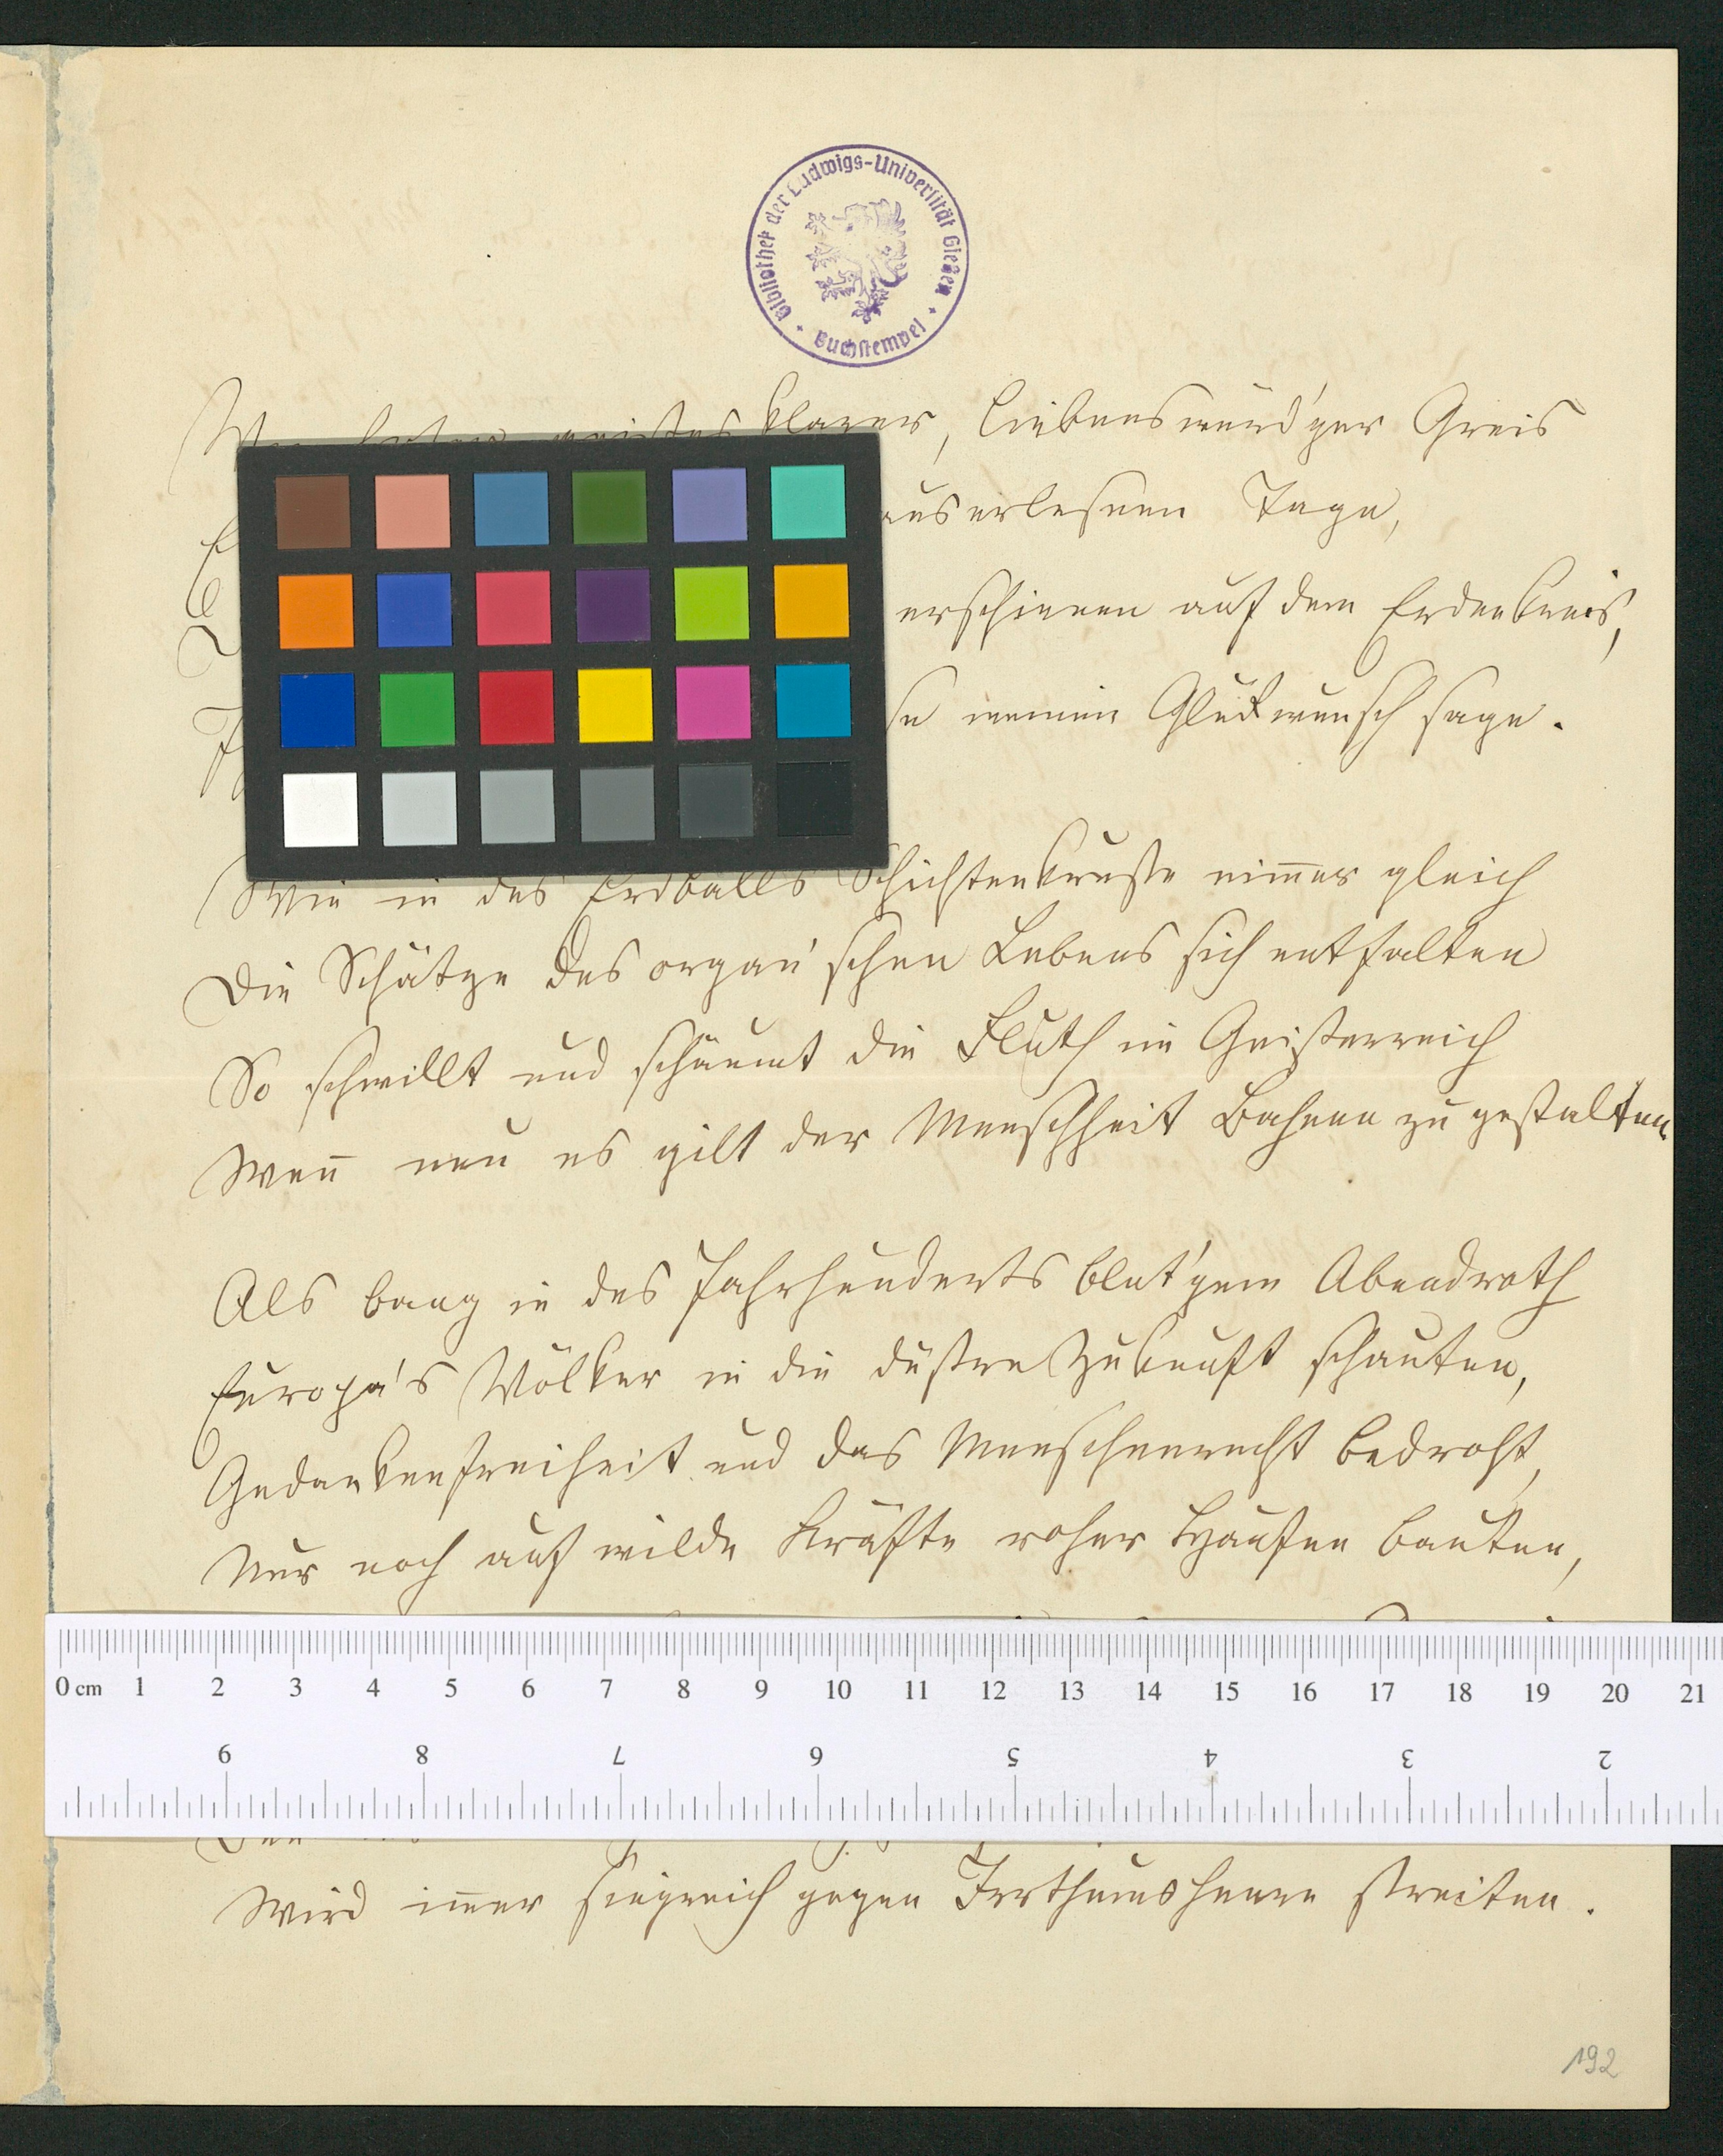 Bibliothek der Ludwigs-Universität Gießen
Buchstempel
geistesklarer, liebenswürd'ger Greis
auserlesnen Tage,
erschienen auf dem Erdenkreis,
meinen Glückwunsch sage.
Wie in des Erdballs Schichtenkruste nim̄er gleich
Die Schätze des organ'schen Lebens sich entfalten
So schwillt und schäumt die Fluth im Geisterreich
Wen̄ neu es gilt der Menschheit Bahnen zu gestalten
Als bang in des Jahrhunderts blut'gem Abendroth
Europa's Völker in die düstre Zukunft schauten,
Gedankenfreiheit und das Menschenrecht bedroht,
Nur noch auf wilde Kräfte roher Haufen bauten,
0 cm 1 2 3 4 5 6 7 8 9 10 11 12 13 14 15 16 17 18 19 20 21
9 8 7 6 5 4 3 2
Wird im̄er siegreich gegen Irrthumsheere streiten.
192